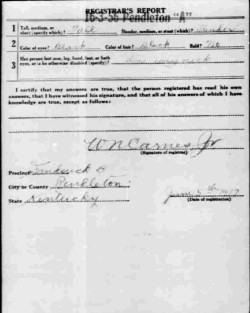 REGISTRAR'S REPORT
16-3-56 Pendleton "A"
1 Tall, medium, or short (specify which)? Tall Slender, medium, or stout (which)?
2 Color of eyes? Black Color of hair? Black Bald? No
3 Has person lost arm, leg, hand, foot, or both eyes, or is he otherwise disabled (specify)?
I certify that my answers are true, that the person registered has read his own answers, that I have witnessed his signature, and that all of his answers of which I have knowledge are true, except as follows:
W N Carnes, Jr
(Signature of registrar)
Precinct
City or County Pendleton
State Kentucky
June 5th 1917
(Date of registration)